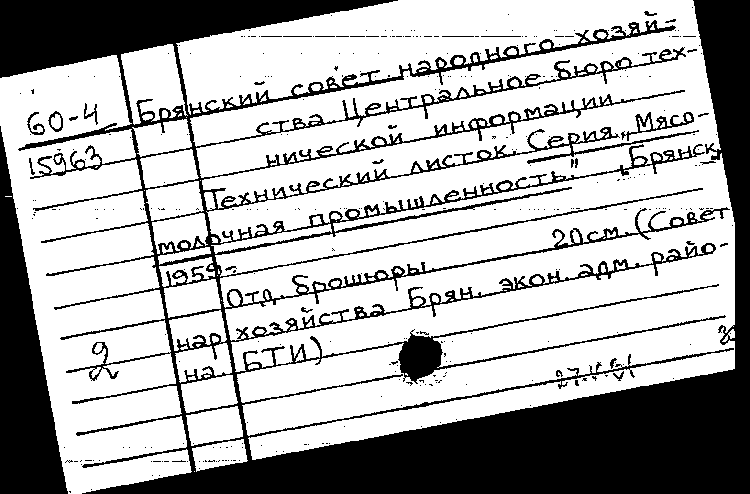 60-4 Брянский совет народного хозяй-
15963 ства. Центральное бюро тех-
нической информации.
Технический листок. Серия „Мясо-
молочная промышленность." „Брянск„
1959-
Отд. брошюры. 20см. (Совет
2 нар. хозяйства Брян. экон. адм. райо-
на. БТИ).